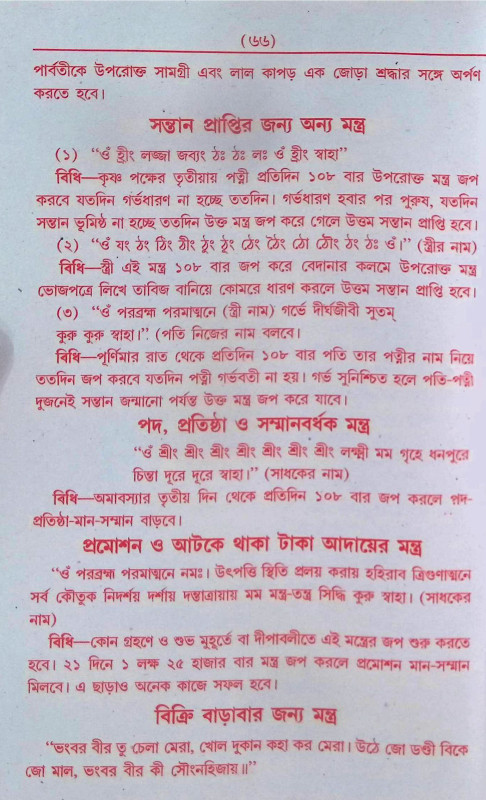 (৬৬)
পার্বতীকে উপরোক্ত সামগ্রী এবং লাল কাপড় এক জোড়া শ্রদ্ধার সঙ্গে অর্পণ
করতে হবে।
সন্তান প্রাপ্তির জন্য অন্য মন্ত্র
(১) “ওঁ হ্রীং লজ্জা জব্যং ঠঃ ঠঃ লঃ ওঁ হ্রীং স্বাহা”
বিধি—কৃষ্ণ পক্ষের তৃতীয়ায় পত্নী প্রতিদিন ১০৮ বার উপরোক্ত মন্ত্র জপ
করবে যতদিন গর্ভধারণ না হচ্ছে ততদিন। গর্ভধারণ হবার পর পুরুষ, যতদিন
সন্তান ভূমিষ্ঠ না হচ্ছে ততদিন উক্ত মন্ত্র জপ করে গেলে উত্তম সন্তান প্রাপ্তি হবে।
(২) “ওঁ যং ঠং ঠিং ঠীং ঠুং ঠূং ঠেং ঠৈং ঠোং ঠৌং ঠং ঠঃ ওঁ।” (স্ত্রীর নাম)
বিধি—স্ত্রী এই মন্ত্র ১০৮ বার জপ করে বেদানার কলমে উপরোক্ত মন্ত্র
ভোজপত্রে লিখে তাবিজ বানিয়ে কোমরে ধারণ করলে উত্তম সন্তান প্রাপ্তি হবে।
(৩) “ওঁ পরব্রহ্ম পরমাত্মনে (স্ত্রী নাম) গর্ভে দীর্ঘজীবী সুতম্
কুরু কুরু স্বাহা।” (পতি নিজের নাম বলবে।
বিধি—পূর্ণিমার রাত থেকে প্রতিদিন ১০৮ বার পতি তার পত্নীর নাম নিয়ে
ততদিন জপ করবে যতদিন পত্নী গর্ভবতী না হয়। গর্ভ সুনিশ্চিত হলে পতি-পত্নী
দুজনেই সন্তান জন্মানো পর্যন্ত উক্ত মন্ত্র জপ করে যাবে।
পদ, প্রতিষ্ঠা ও সম্মানবর্ধক মন্ত্র
“ওঁ শ্রীং শ্রীং শ্রীং শ্রীং শ্রীং শ্রীং শ্রীং লক্ষ্মী মম গৃহে ধনপুরে
চিন্তা দূরে দূরে স্বাহা।” (সাধকের নাম)
বিধি—অমাবস্যার তৃতীয় দিন থেকে প্রতিদিন ১০৮ বার জপ করলে পদ-
প্রতিষ্ঠা-মান-সম্মান বাড়বে।
প্রমোশন ও আটকে থাকা টাকা আদায়ের মন্ত্র
“ওঁ পরব্রহ্ম পরমাত্মনে নমঃ। উৎপত্তি স্থিতি প্রলয় করায় হহিরাব ত্রিগুণাত্মনে
সর্ব কৌতুক নিদর্শয় দর্শায় দত্তাত্রায়ায় মম মন্ত্র-তন্ত্র সিদ্ধি কুরু স্বাহা। (সাধকের
নাম)
বিধি—কোন গ্রহণে ও শুভ মুহূর্তে বা দীপাবলীতে এই মন্ত্রের জপ শুরু করতে
হবে। ২১ দিনে ১ লক্ষ ২৫ হাজার বার মন্ত্র জপ করলে প্রমোশন মান-সম্মান
মিলবে। এ ছাড়াও অনেক কাজে সফল হবে।
বিক্রি বাড়াবার জন্য মন্ত্র
“ভংবর বীর তু চেলা মেরা, খোল দুকান কহা কর মেরা। উঠে জো ডণ্ডী বিকে
জো মাল, ভংবর বীর কী সৌংনহিজায়॥”